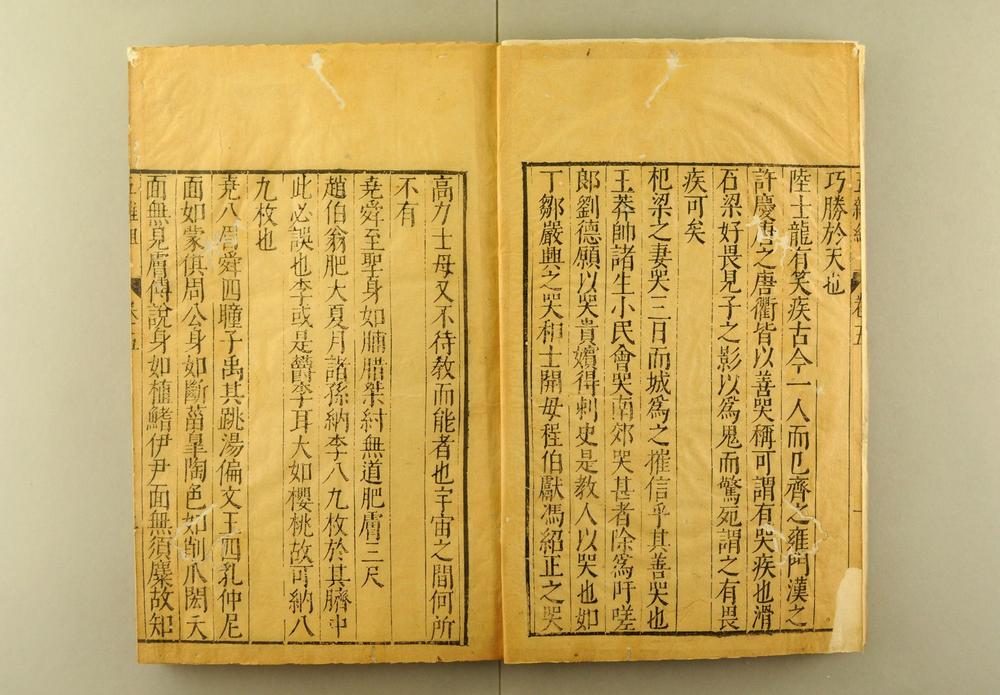 五雜組 卷五
巧勝於天也
陸士龍有笑疾古今一人而已齊之雍門漢之
許慶唐之唐衢皆以善哭稱可謂有哭疾也滑
石梁好畏見子之影以爲鬼而驚死謂之有畏
疾可矣
杞梁之妻哭三日而城爲之摧信乎其善哭也
王莽帥諸生小民會哭南郊哭甚者除爲吁嗟
郎劉德願以哭貴嬪得刺史是教人以哭也如
丁鄒嚴興之哭和士開母程伯獻馮紹正之哭
高力士母又不待教而能者也宇宙之間何所
不有
堯舜至聖身如脯腊桀紂無道肥膚三尺
趙伯翁肥大夏月諸孫納李八九枚於其臍中
此必誤也李或是欝李耳大如櫻桃故可納八
九枚也
堯八眉舜四瞳子禹其跳湯偏文王四乳仲尼
面如蒙倛周公身如斷菑皐陶色如削爪閎夭
面無見膚傅說身如植鰭伊尹面無須麋故知
五雜組 卷五